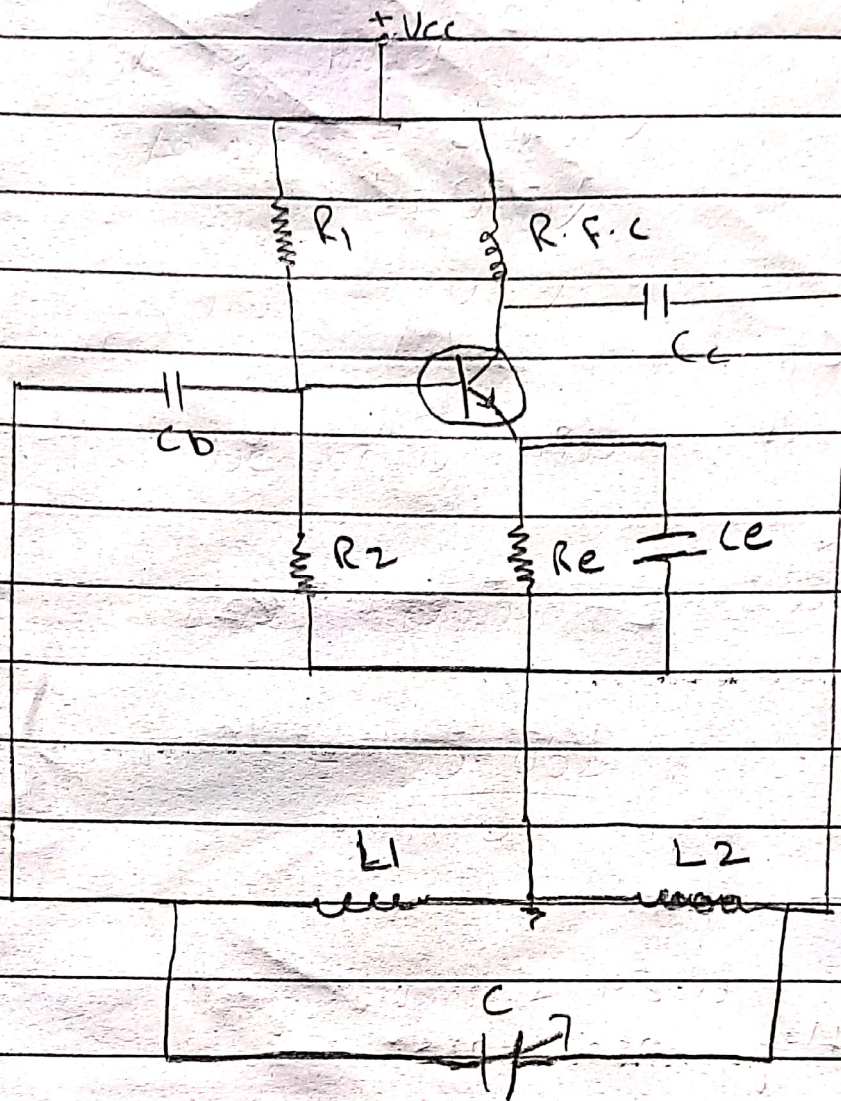 + Vcc
R1
R.F.C
Cc
Cb
R2
Re
Ce
L1
L2
C